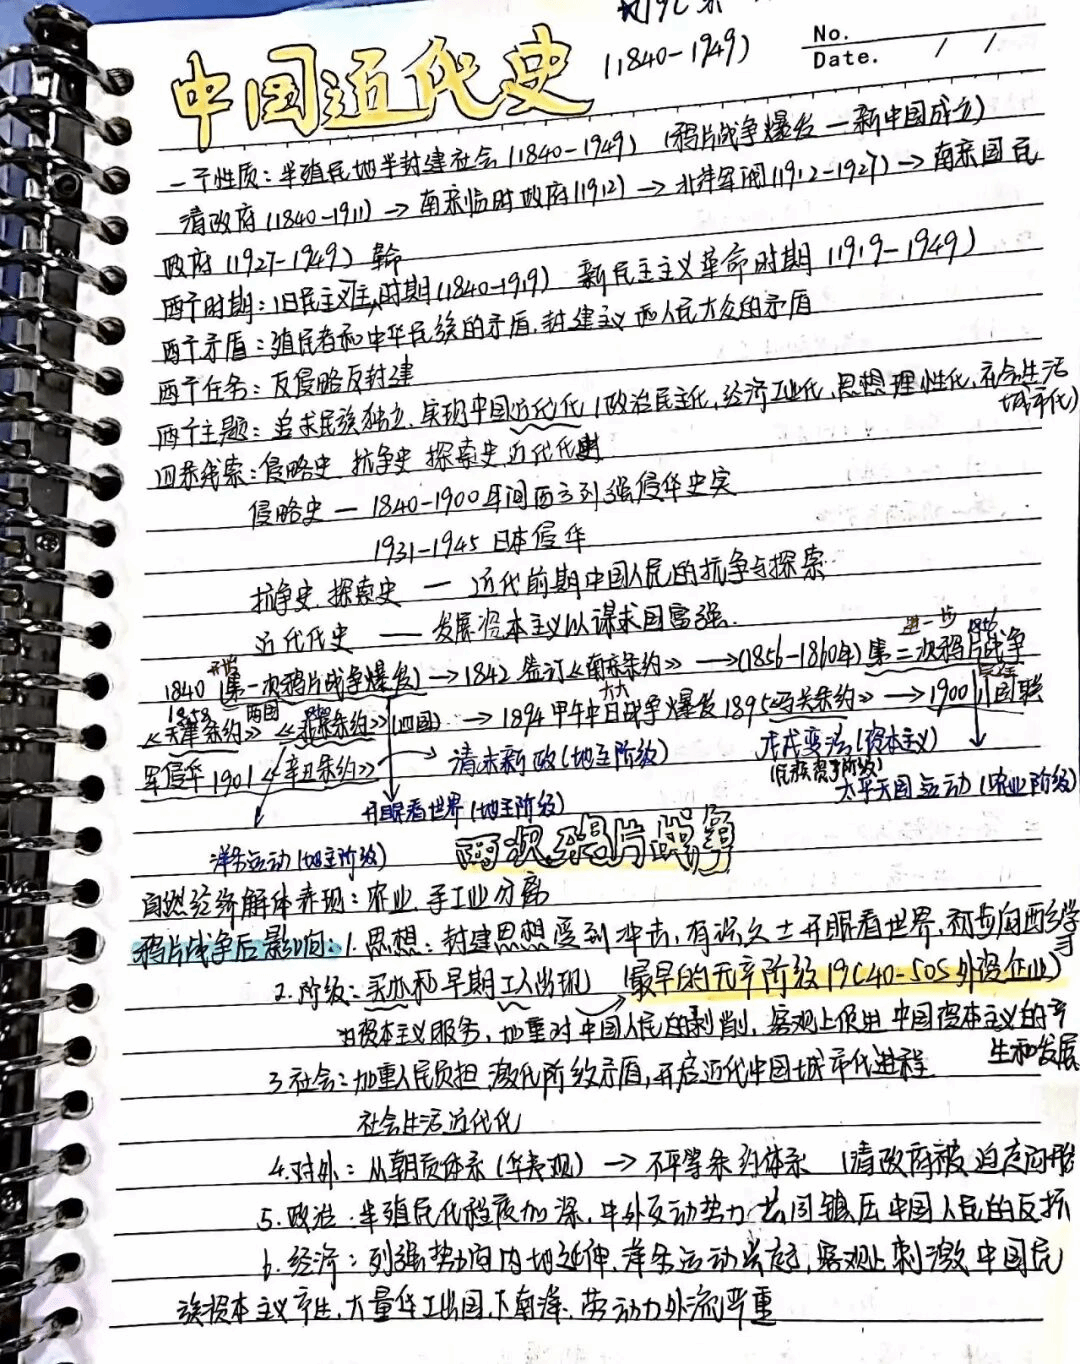 No.
Date. / /
(1840-1949)
中国近代史
一个性质：半殖民地半封建社会(1840-1949) (鸦片战争爆发—新中国成立)
清政府(1840-1911)→南京临时政府(1912)→北洋军阀(1912-1927)→南京国民
政府(1927-1949)
两个时期：旧民主义主时期(1840-1919) 新民主主义革命时期(1919-1949)
两个矛盾：殖民者和中华民族的矛盾,封建主义和人民大众的矛盾
两个任务：反侵略反封建
两个主题：追求民族独立,实现中国近代化(政治民主化,经济工业化,思想理性化,社会生活
城市化)
四条线索：侵略史 抗争史 探索史 近代化史
侵略史—1840-1900年间西方列强侵华史实
1931-1945日本侵华
抗争史,探索史—近代前期中国人民的抗争与探索
近代代史——发展资本主义以谋求国富强.
开始 进一步 1856
1840(第一次鸦片战争爆发)→1842签订《南京条约》→(1856-1860年)第二次鸦片战争
1858 两国 1860
《天津条约》《北京条约》(四国)→1894甲午中日战争爆发1895《马关条约》→1900八国联
军侵华1901《辛丑条约》 清末新政(地主阶级) 戊戌变法(资本主义)
(民族资产阶级)
开眼看世界(地主阶级) 太平天国运动(农业阶级)
洋务运动(地主阶级)
两次鸦片战争
自然经济解体表现：农业,手工业分离
鸦片战争后影响：1.思想：封建思想受到冲击,有识之士开眼看世界,初步向西方学
习
2.阶级：买办和早期工人出现 (最早的无产阶级19C40-50S外资企业)
为资本主义服务,加重对中国人民的剥削,客观上促进中国资本主义的产
生和发展
3.社会：加重人民负担 激化阶级矛盾,开启近代中国城市代进程
社会生活近代化
4.对外：从朝贡体系(华夷观)→不平等条约体系 (清政府被迫
5.政治：半殖民化程度加深,中外反动势力共同镇压中国人民的反抗
6.经济：列强势力向内地延伸,洋务运动兴起,客观上刺激中国民
族资本主义产生,大量华工出国,下南洋,劳动力外流严重